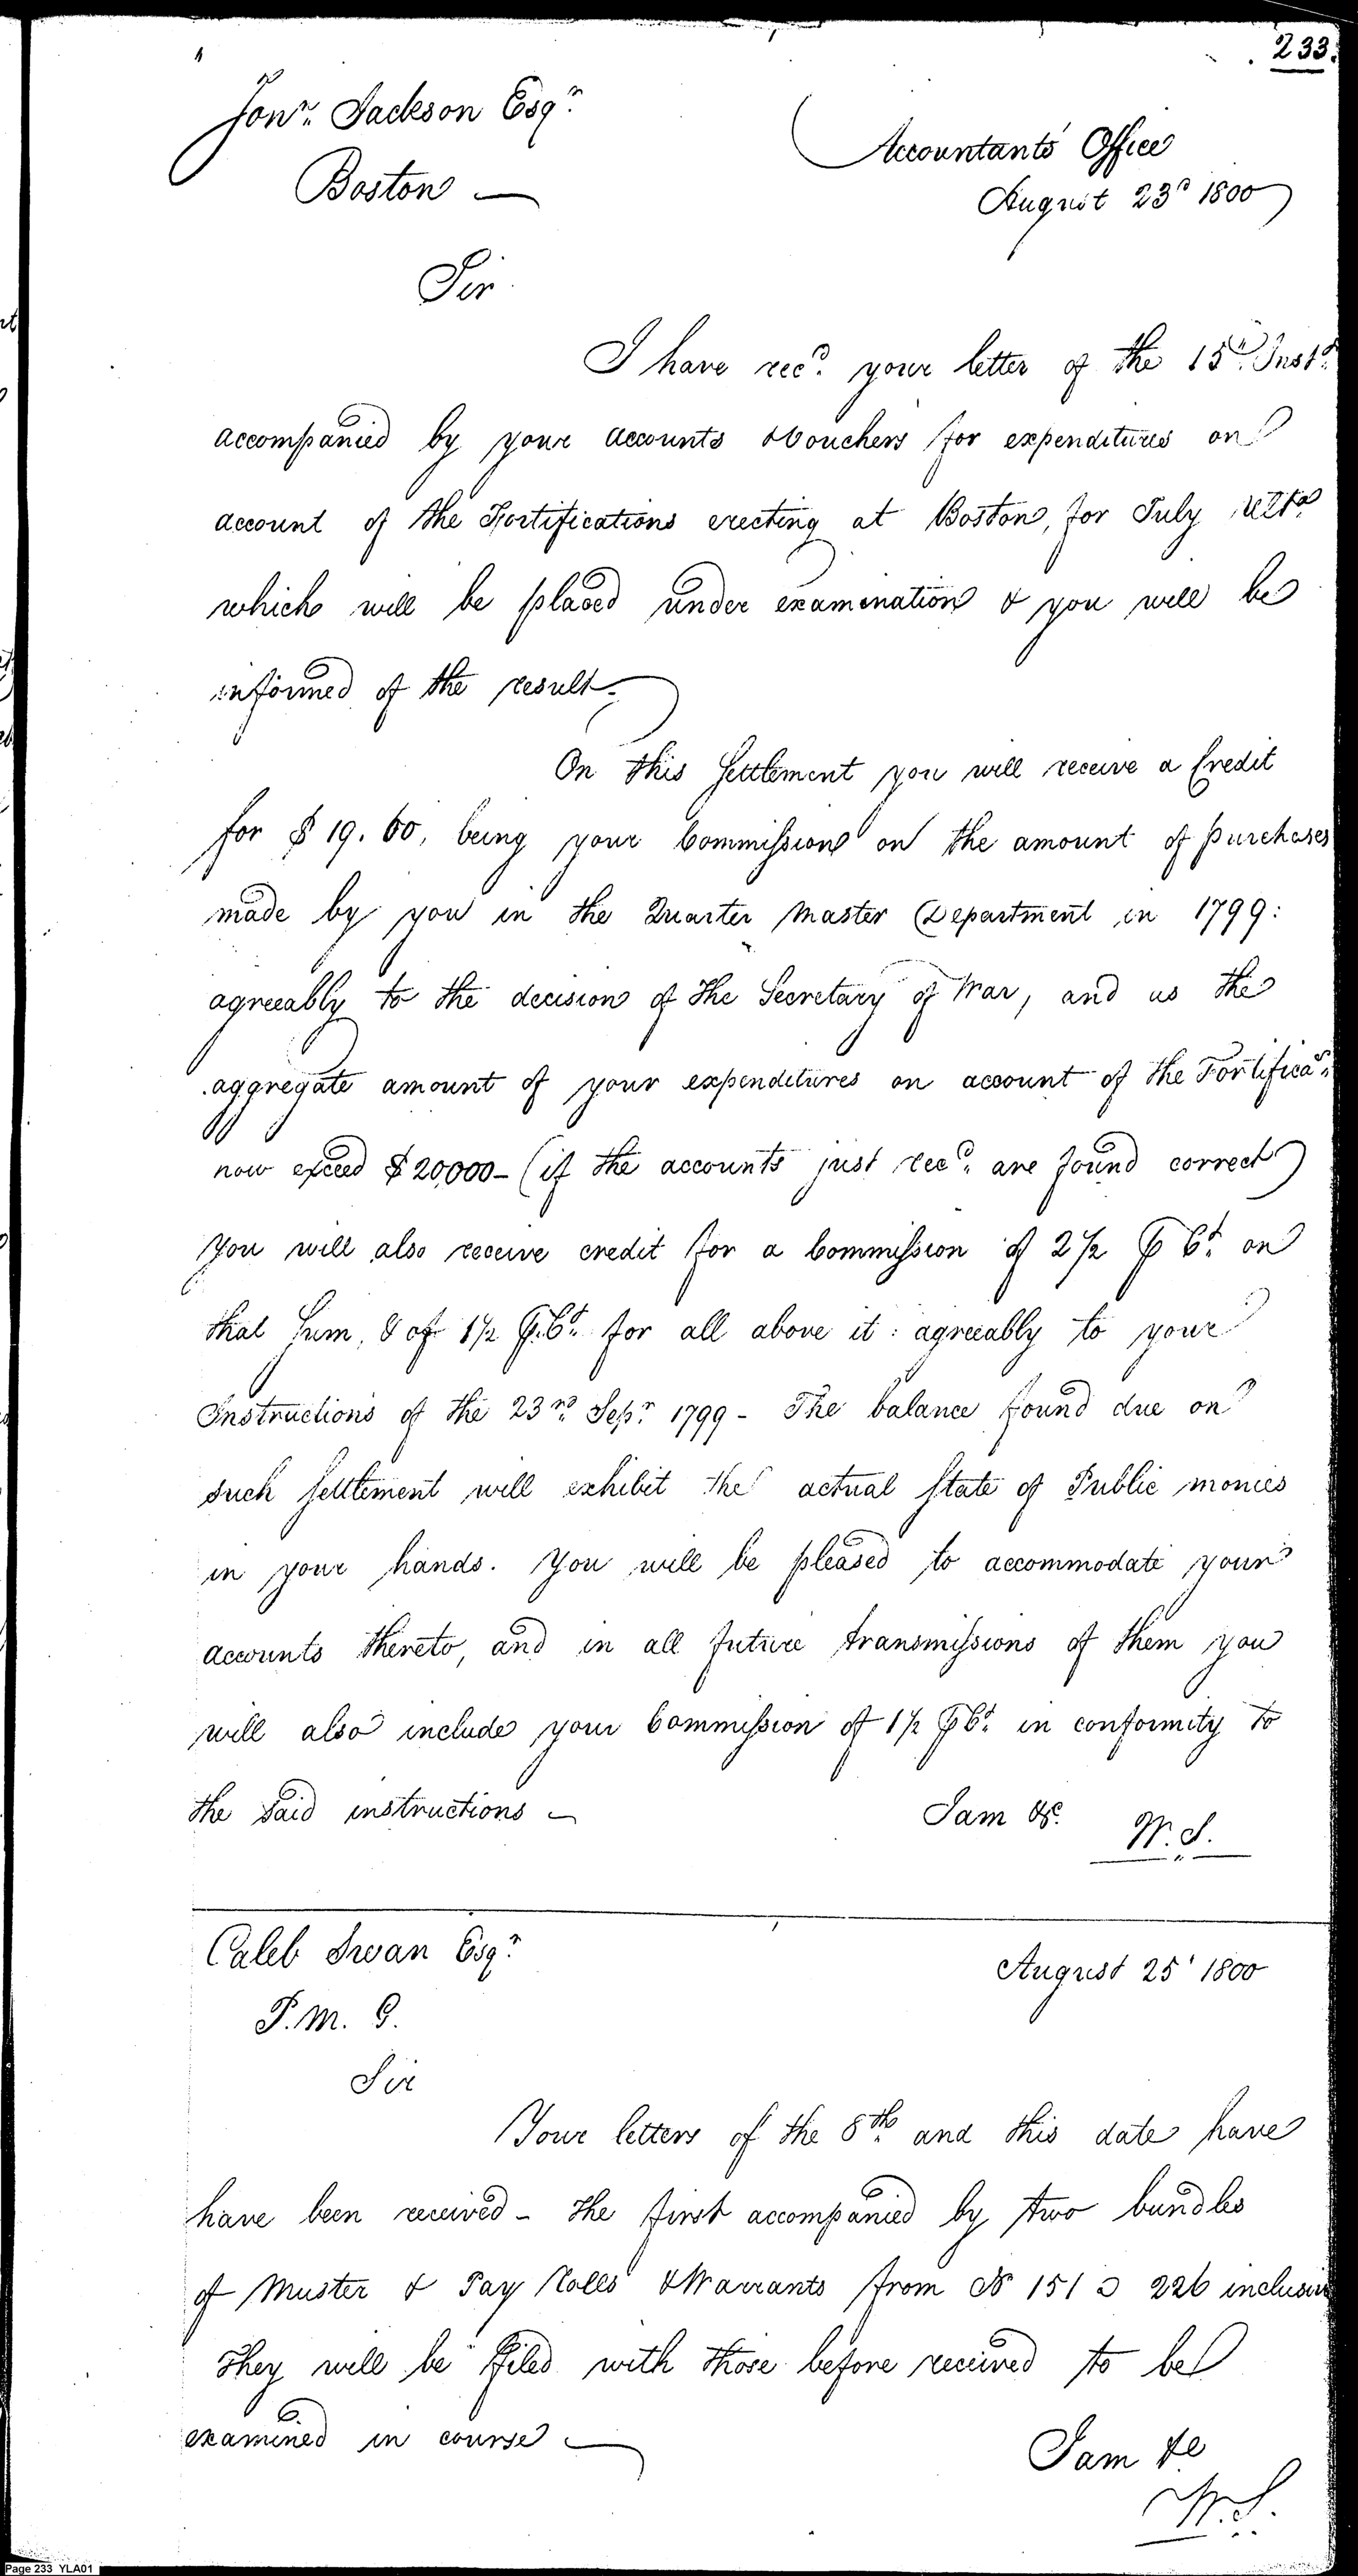 233.
Jonn. Jackson Esqr.
Boston —
Accountants Office
August 23d 1800
Sir
I have recd. your letter of the 15th. Inst.
accompanied by your accounts & Vouchers for expenditures on
account of the Fortifications erecting at Boston, for July Ulto.
which will be placed under examination & you will be
informed of the result.
On this Settlement you will receive a Credit
for $ 19. 60, being your Commission on the amount of purchases
made by you in the Quarter Master Department in 1799:
agreeably to the decision of the Secretary of War, and as the
aggregate amount of your expenditures on account of the Fortificas.
now exceed $ 20,000 – (if the accounts just recd. are found correct)
you will also receive credit for a Commission of 2 1/2 ⅌ Ct. on
that Sum, & of 1 1/2 ⅌. Ct. for all above it: agreeably to your
Instructions of the 23rd. Sepr. 1799 – The balance found due on
such Settlement will exhibit the actual State of Public monies
in your hands. You will be pleased to accommodate your
accounts thereto, and in all future transmissions of them you
will also include your Commission of 1 1/2 ⅌ Ct. in conformity to
the said instructions –
I am &c.
W. S.
Caleb Swan Esqr.
August 25t 1800
P. M. G.
Sir
Your letters of the 8th. and this date have
have been received – The first accompanied by two bundles
of Muster & Pay Rolls & Warrants from No 151 @ 226 inclusive
They will be filed with those before received to be
examined in course —
I am &c
W. S.
Page 233 YLA01